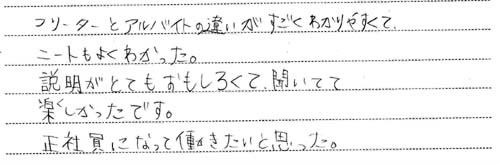 フリーターとアルバイトの違いがすごくわかりやすくて、
ニートもよくわかった。
説明がとてもおもしろくて、聞いてて
楽しかったです。
正社員になって働きたいと思った。